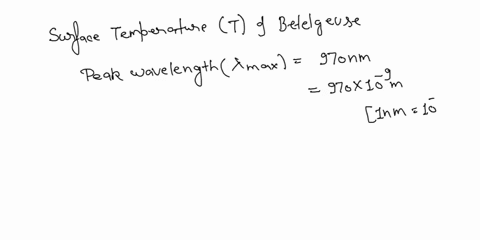 Surface Temperature (T) of Betelgeuse
Peak wavelength (λmax) = 970nm
= 970×10⁻⁹m
[1nm = 10⁻